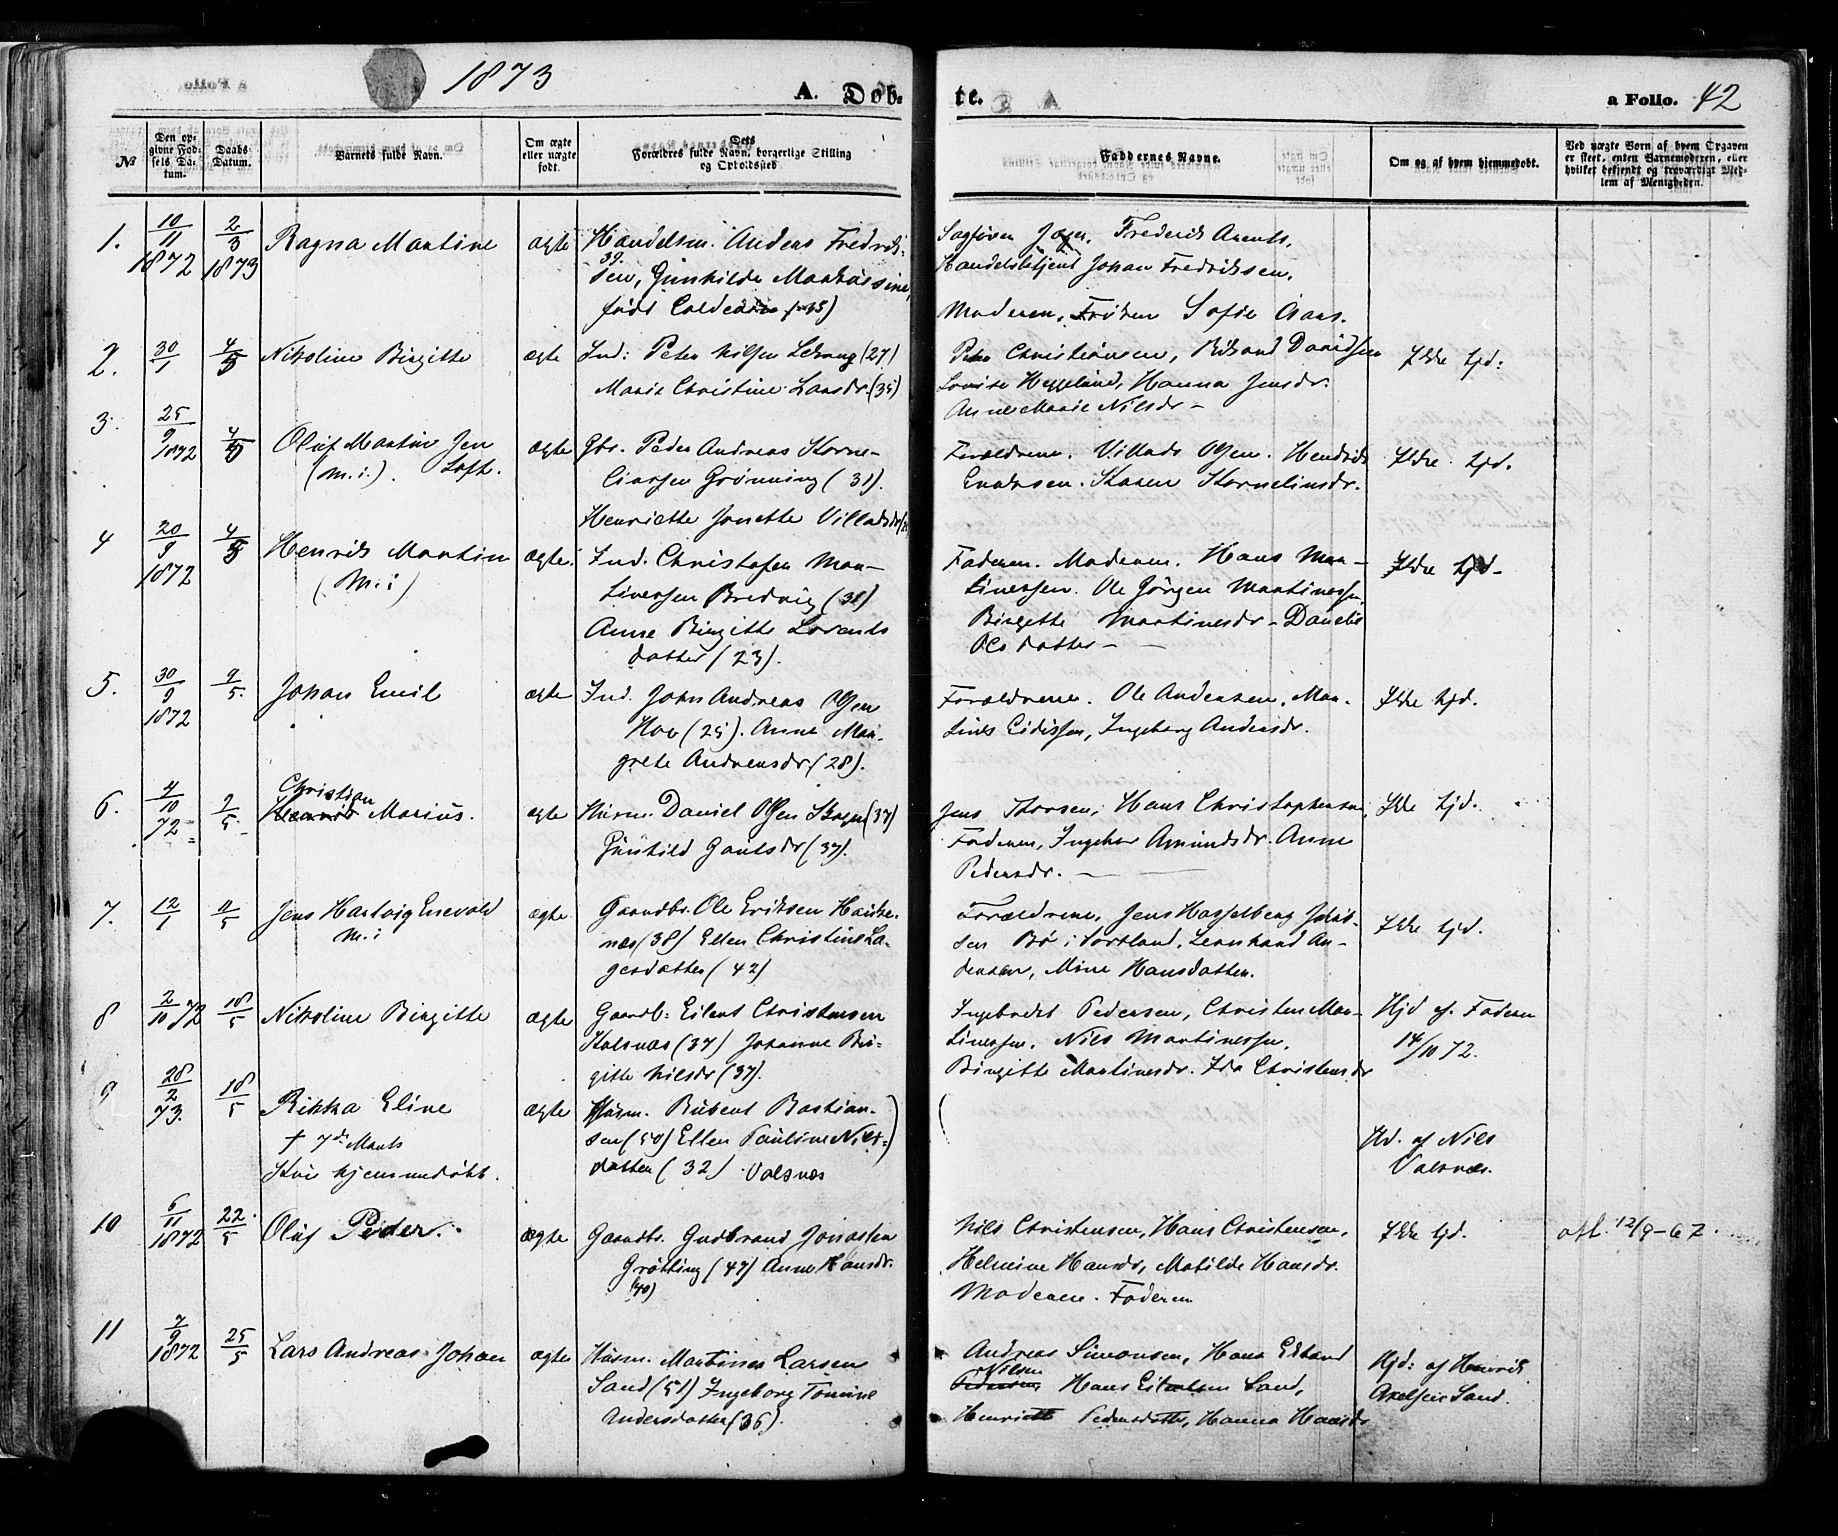 1873
A. Døb-
te.
a Folio. 42
No
Den op-
givne Fød-
sels Da-
tum.
Daabs-
Datum.
Barnets fulde Navn.
Om ægte
eller uægte
født.
Dets
Forældres fulde Navn, borgerlige Stilling
og Opholdssted.
Faddernes Navne.
Om og af hvem hjemmedøbt.
Ved uægte Børn af hvem Opgaven
er skeet, enten Barnemoderen, eller
hvilket bekjendt og troværdigt Med-
lem af Menigheden.
1.
10/11
1872
2/3
1873
Ragna Martine
ægte
Handelsm. Anders Fredrik-
39.
sen, Gunhilde Markussine,
født
Sagfører Frederik Arents,
Handelsbetjent Johan Fredriksen,
Moderen, Frøken Sofie
2.
30/1
4/5
Nikoline Birgitte
ægte
Ind: Peter Nilsen (27)
Marie Christine Larsdr. (35)
Peter Christiansen, Davidsen
Lovise Heggelund, Hanna Jensdr.
Anne Marie Nilsdr -
Ikke hjd:
3.
25/9
1872
4/5
Oluf Martin Jen
(m.i.). Loft.
ægte
Gbr. Peder Andreas Korne-
liussen Grønning (31).
Henriette Jonette Villadsdr
Forældrene. Villads Olsen. Hendrik
Karen Korneliusdr.
Ikke hjd.
4
20/9
1872
4/5
Henrik Martin
(M.i)
ægte.
Ind. Christofer Mar-
tinessen Bredvig (31)
Anne Birgitte Lorents
datter (23).
Faderen. Moderen. Hans Mar-
tinessen. Ole Jørgen Martinessen,
Birgitte Martinesdr - Danelie
Olsdatter -
Ikke hjd -
5.
30/9
1872
9/5.
Johan Emil
ægte
Ind. John Andreas Olsen
Hov (25). Anne Mar-
grete Andreasdr. (28).
Forældrene. Ole Andersen, Mar-
tines Eidissen, Ingeborg Andersdr.
Ikke hjd.
6.
4/10
72
9/5.
Christian
Henrik Marius.
ægte
Husm. Daniel Olsen Skogen (37)
Gunhild Gautsdr (37).
Jens Hans Christophersen,
Faderen, Ingebor Amundsdr. Anne
Pedersdr. -
Ikke hjd.
7.
12/1
11/5
Jens Hartvig Enevold
M.i
ægte
Gaardbr. Ole Eriksen Hauke-
næs (38) Ellen Christine La-
gesdatter (42)
Forældrene, Jens Hasselberg
sen Bø i Sortland, Leonhard An-
dersen, Mine Hansdatter.
Ikke hjd.
8
2/10 72
18/5
Nikoline Birgitte
ægte
Gaardb: Eilert Christensen
Kalsnæs (37) Johanne Bir-
gitte Nilsdr (37).
Ingebret Pedersen, Christen Mar-
tinessen. Nils Martinessen,
Birgitte Martinesdr. Ida Christensdr
Hjd af Faderen
14/10 72.
9
28/2
73.
18/5
Rikka Eline
† 7de Marts
Kun hjemmedøbt.
ægte
Husm. Rubert Bastian-
sen (50) Ellen Pauline Nils-
datter (32) Valsnæs
Hd. af Nils
Valsnæs.
10
6/11
1872
22/5
Oluf Peder.
ægte
Gaardbr. Gudbrand Jonassen
Grøtting (47) Anne Hansdr.
(40)
Nils Christensen, Hans Christensen,
Helmine Hansdr, Matilde Hansdr.
Moderen. Faderen
Ikke hjd.
att. 12/9-62.
11
7/9
1872
25/5
Lars Andreas Johan
ægte
Husm. Martines Larsen
Sand (51) Ingeborg Tomine
Andersdatter (36).
Andreas Simonsen, Hans Edvard
Nilsen
Pedersen Hans Sand,
Henriette Pedersdatter, Hanna Hansdr
Hjd: af Henrik
Axelsen Sand.